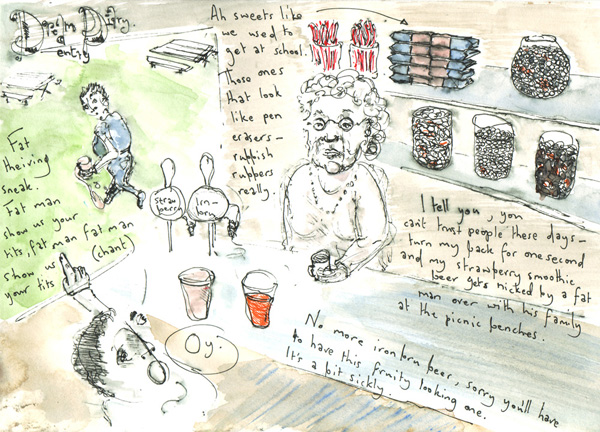 Dream Diary.
entry
Ah sweets like
we used to
get at school.
Those ones
that look
like pen
erasers -
rubbish
rubbers
really.
Fat
theiving
sneak.
Fat man
show us your
tits, fat man fat man
show us (chant)
your tits
straw
berry
Irn-
born
I tell you, you
can't trust people these days -
turn my back for one second
and my strawberry smoothie
beer gets nicked by a fat
man over with his family
at the picnic benches.
Oy!
No more ironborn beer, sorry you'll have
to have this fruity looking one.
It's a bit sickly.